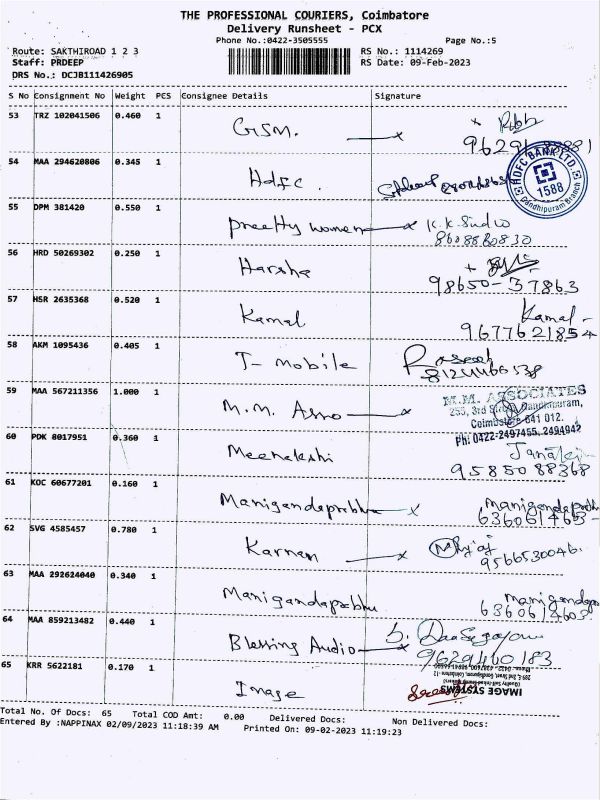 THE PROFESSIONAL COURIERS, Coimbatore
Delivery Runsheet - PCX
Phone No.:0422-3505555 Page No.:5
Route: SAKTHIROAD 1 2 3 RS No.: 1114269
Staff: PRDEEP RS Date: 09-Feb-2023
DRS No.: DCJB111426905
S No Consignment No Weight PCS Consignee Details Signature
53 TRZ 102041506 0.460 1 GSM.
54 MAA 294620806 0.345 1 Hdfc.
HDFC BANK LTD.
1588
Gandhipuram Branch
55 DPM 381420 0.550 1 preetty women K.K. Sindio
8608880830
56 HRD 50269302 0.250 1 Harsha
98650-37863
57 HSR 2635368 0.520 1 Kamal Kamal
9677621854
58 AKM 1095436 0.405 1 T- mobile
59 MAA 567211356 1.000 1 M.M. Asso
M.M. ASSOCIATES
255, 3rd Street, Gandhipuram,
Coimbatore-641 012.
Ph: 0422-2497455, 2494942
60 PDK 8017951 0.360 1 Meenakshi
9585088368
61 KOC 60677201 0.160 1 Manigandaprabhu Manigandaprabhu
6360614603
62 SVG 4585457 0.780 1 Karnan
9566530046.
63 MAA 292624040 0.340 1 Manigandaprabhu Manigandaprabhu
6360614603
64 MAA 859213482 0.440 1 Blessing Audio
9629460183
65 KRR 5622181 0.170 1 Image
IMAGE SYSTEMS
Total No. Of Docs: 65 Total COD Amt: 0.00 Delivered Docs: Non Delivered Docs:
Entered By :NAPPINAX 02/09/2023 11:18:39 AM Printed On: 09-02-2023 11:19:23